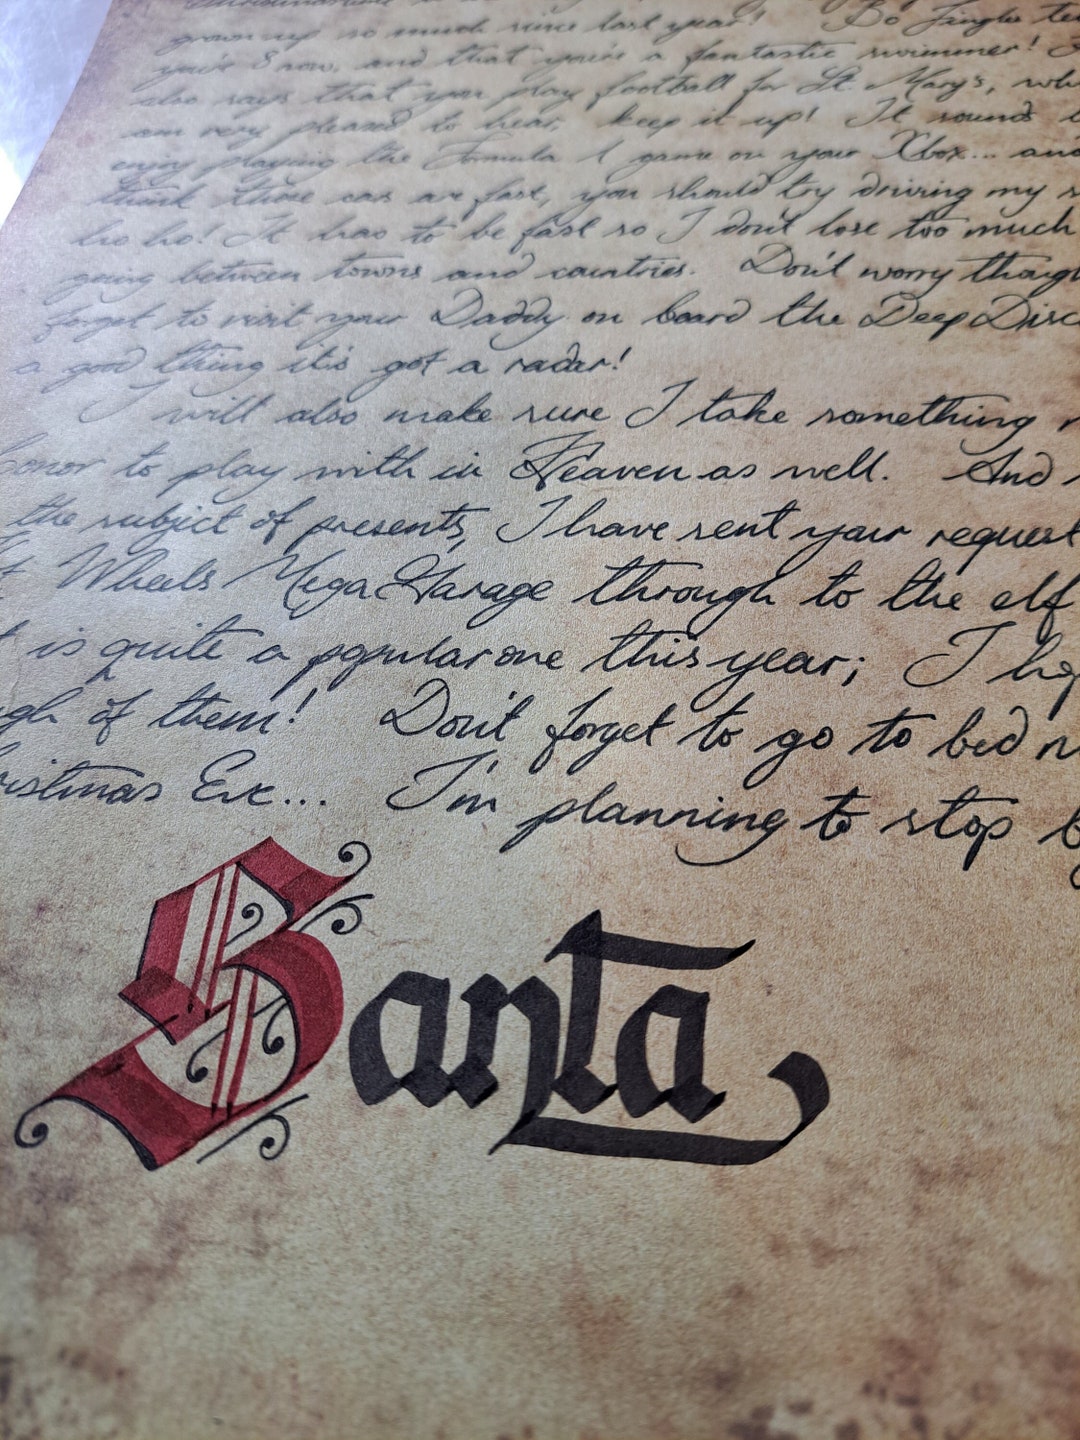 grown up so much since last year! Bo Jingles te
you're 8 now, and that you're a fantastic swimmer!
also says that you play football for St. Mary's, wh
am very pleased to hear, keep it up! It sounds
enjoy playing the Formula 1 game on your Xbox... and
think those cars are fast, you should try driving my s
ho ho! It has to be fast so I don't lose too much
going between towns and countries. Don't worry though
forget to visit your Daddy on board the Deep Disc
a good thing it's got a radar!
I will also make sure I take something n
onor to play with in Heaven as well. And
the subject of presents, I have sent your request
t Wheels Mega Garage through to the elf
t is quite a popular one this year; I hop
gh of them! Don't forget to go to bed n
ristmas Eve... I'm planning to stop b
Santa